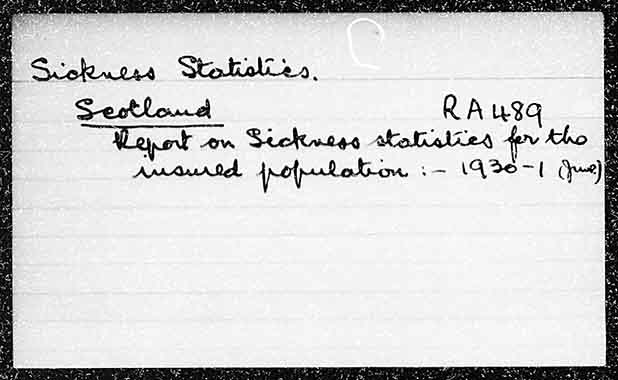 Sickness Statistics.
Scotland RA489
Report on Sickness statistics for the
insured population :- 1930-1 (June)